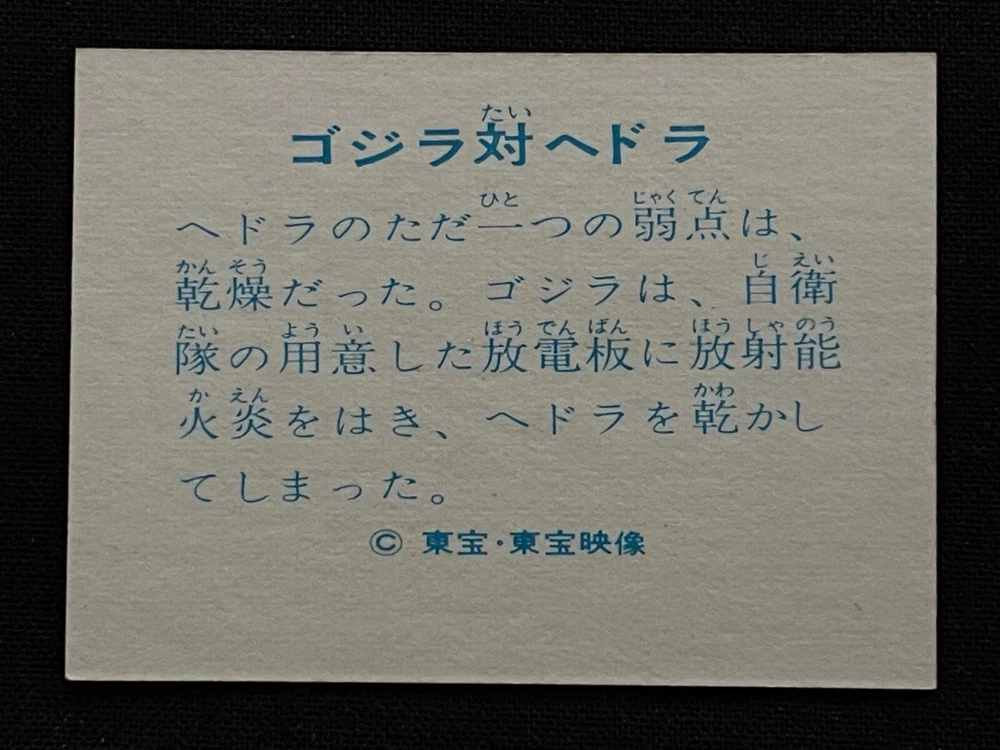 ゴジラ対ヘドラ
ヘドラのただ一つの弱点は、
乾燥だった。ゴジラは、自衛
隊の用意した放電板に放射能
火炎をはき、ヘドラを乾かし
てしまった。
© 東宝・東宝映像